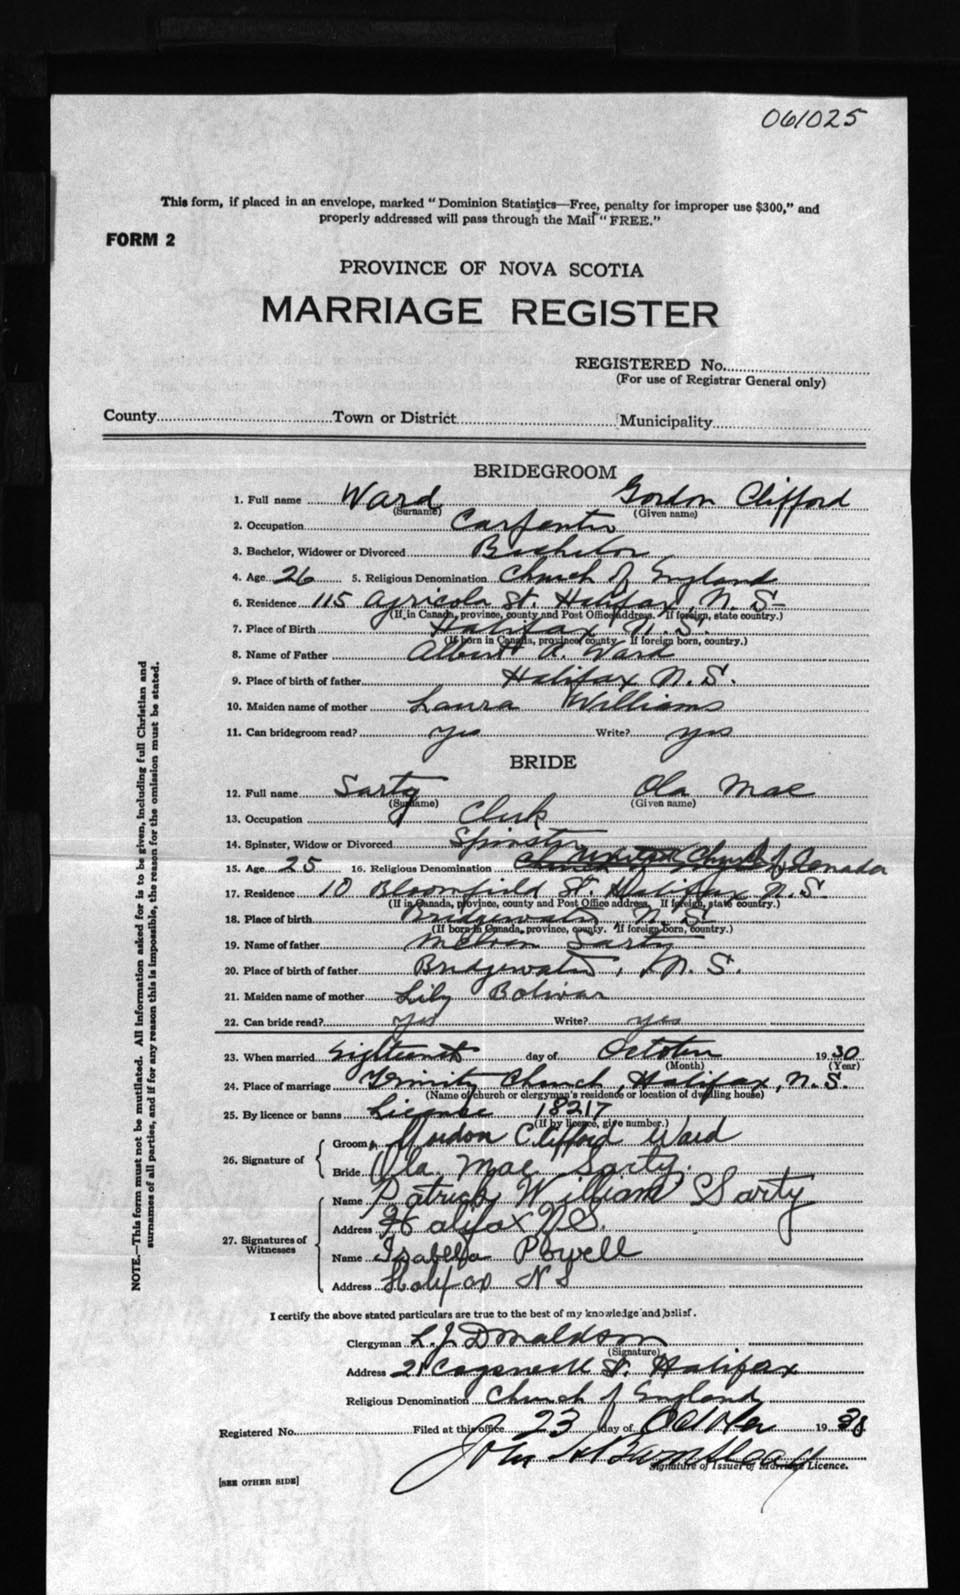 061025
This form, if placed in an envelope, marked "Dominion Statistics—Free, penalty for improper use $300," and
properly addressed will pass through the Mail "FREE."
FORM 2
PROVINCE OF NOVA SCOTIA
MARRIAGE REGISTER
REGISTERED No.
(For use of Registrar General only)
County Town or District Municipality
BRIDEGROOM
1. Full name Ward Gordon Clifford
(Surname) (Given name)
2. Occupation Carpenter
3. Bachelor, Widower or Divorced Bachelor
4. Age 26 5. Religious Denomination Church of England
6. Residence 115 Agricola St. Halifax, N.S.
(If in Canada, province, county and Post Office address. If foreign, state country.)
7. Place of Birth Halifax N.S.
(If born in Canada, province, county. If foreign born, country.)
8. Name of Father Albert R. Ward
9. Place of birth of father Halifax N.S.
10. Maiden name of mother Laura Williams
11. Can bridegroom read? yes Write? yes
BRIDE
12. Full name Sarty Ola Mae
(Surname) (Given name)
13. Occupation Clerk
14. Spinster, Widow or Divorced Spinster
15. Age 25 16. Religious Denomination United Church of Canada
17. Residence 10 Bloomfield St. Halifax N.S.
(If in Canada, province, county and Post Office address. If foreign, state country.)
18. Place of birth Bridgewater, N.S.
(If born in Canada, province, county. If foreign born, country.)
19. Name of father Melvin Sarty
20. Place of birth of father Bridgewater, N.S.
21. Maiden name of mother Lily Bolivar
22. Can bride read? yes Write? yes
23. When married Eighteenth day of October 1930
(Month) (Year)
24. Place of marriage Trinity Church, Halifax, N.S.
(Name of church or clergyman's residence or location of dwelling house)
25. By licence or banns License 18217
(If by licence, give number.)
26. Signature of
Groom Gordon Clifford Ward
Bride Ola Mae Sarty.
27. Signatures of Witnesses
Name Patrick William Sarty
Address Halifax N.S.
Name Isabella Powell
Address Halifax N S
I certify the above stated particulars are true to the best of my knowledge and belief.
Clergyman L. J. Donaldson
(Signature)
Address 21 Cogswell St. Halifax
Religious Denomination Church of England
Registered No. Filed at this office 23 day of October 1930
John
Signature of Issuer of Marriage Licence.
[SEE OTHER SIDE]
NOTE.—This form must not be mutilated. All information asked for is to be given, including full Christian and
surnames of all parties, and if for any reason this is impossible, the reason for the omission must be stated.